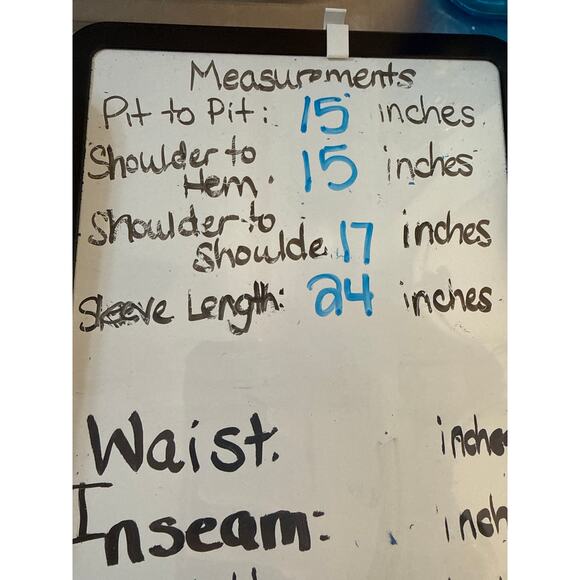 Measurements
Pit to Pit: 15 inches
Shoulder to
Hem: 15 inches
Shoulder to
Shoulde 17 inches
Sleeve Length: 24 inches
Waist: inche
Inseam: inch